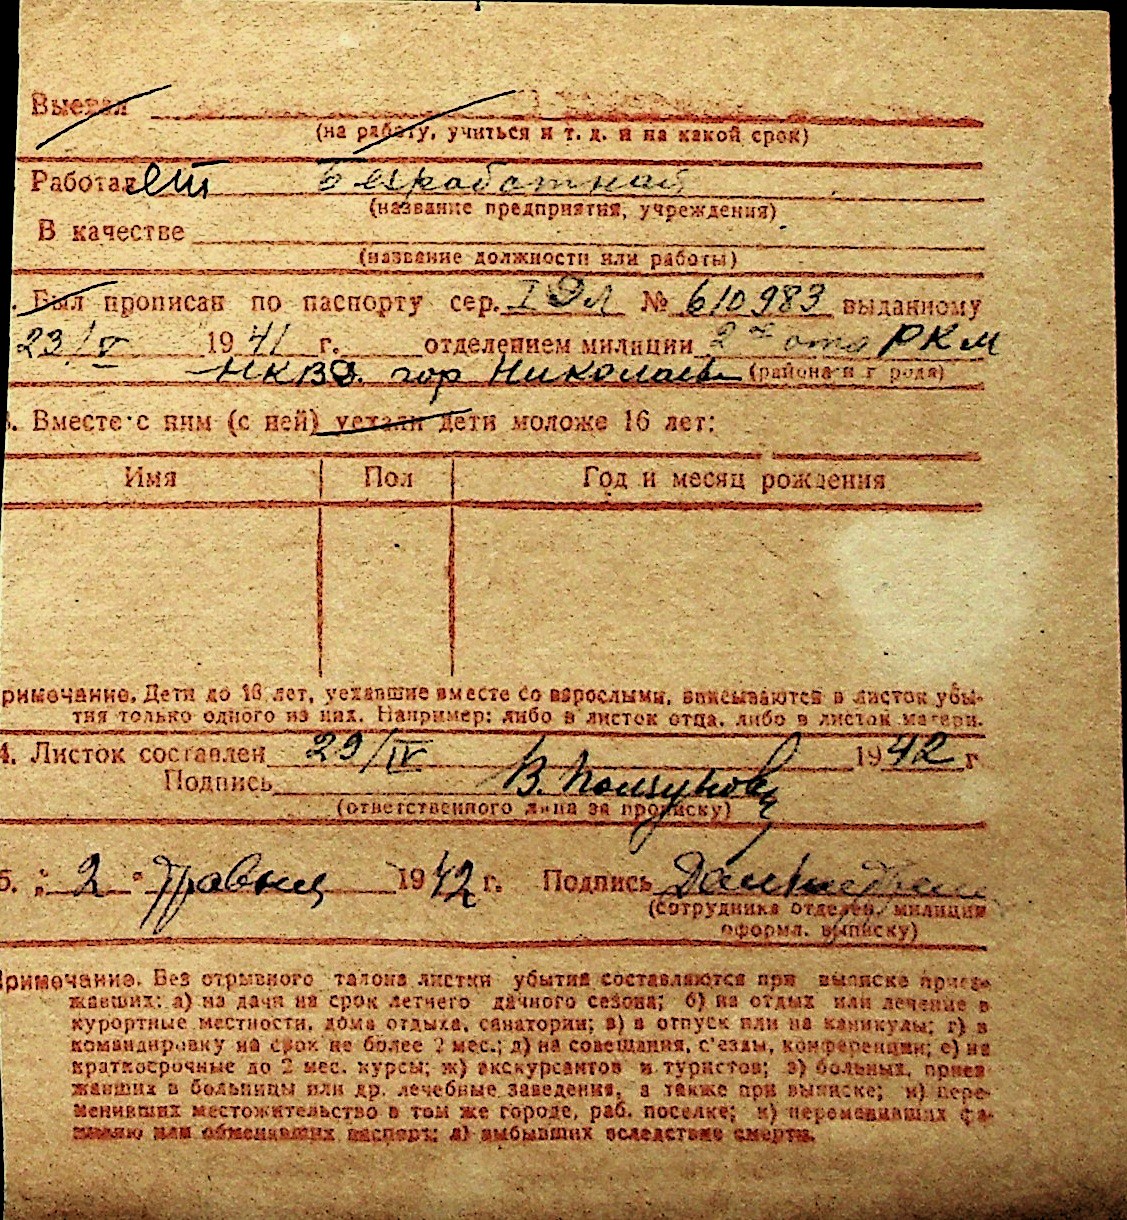 Выехал
(на работу, учиться и т. д. и на какой срок)
Работает Безработная
(название предприятия, учреждения)
В качестве
(название должности или работы)
Был прописан по паспорту сер. I ЭЛ № 610983 выданному
23/V 1941 г. отделением милиции 2 РКМ
НКВД. гор Николаев (района и города)
3. Вместе с ним (с ней) уехали дети моложе 16 лет:
Имя Пол Год и месяц рождения
римечание. Дети до 16 лет, уехавшие вместе со взрослыми, вписываются в листок убы-
тия только одного из них. Например: либо в листок отца, либо в листок матери.
4. Листок составлен 29/IV 1942 г
Подпись В.
(ответственного лица за прописку)
5. „ 2 " травня 1942 г. Подпись
(сотрудника отделен. милиции
оформл. выписку)
римечание. Без отрывного талона листки убытия составляются при выписке приез-
жавших: а) на дачи на срок летнего дачного сезона; б) на отдых или лечение в
курортные местности, дома отдыха, санатории; в) в отпуск или на каникулы; г) в
командировку на срок не более 2 мес.; д) на совещания, с'езды, конференции; е) на
краткосрочные до 2 мес. курсы; ж) экскурсантов и туристов; з) больных, приез
жавших в больницы или др. лечебные заведения, а также при выписке; и) пере-
менивших местожительство в том же городе, раб. поселке; к) переменивших фа-
милию или обменявших паспорт; л) выбывших вследствие смерти.